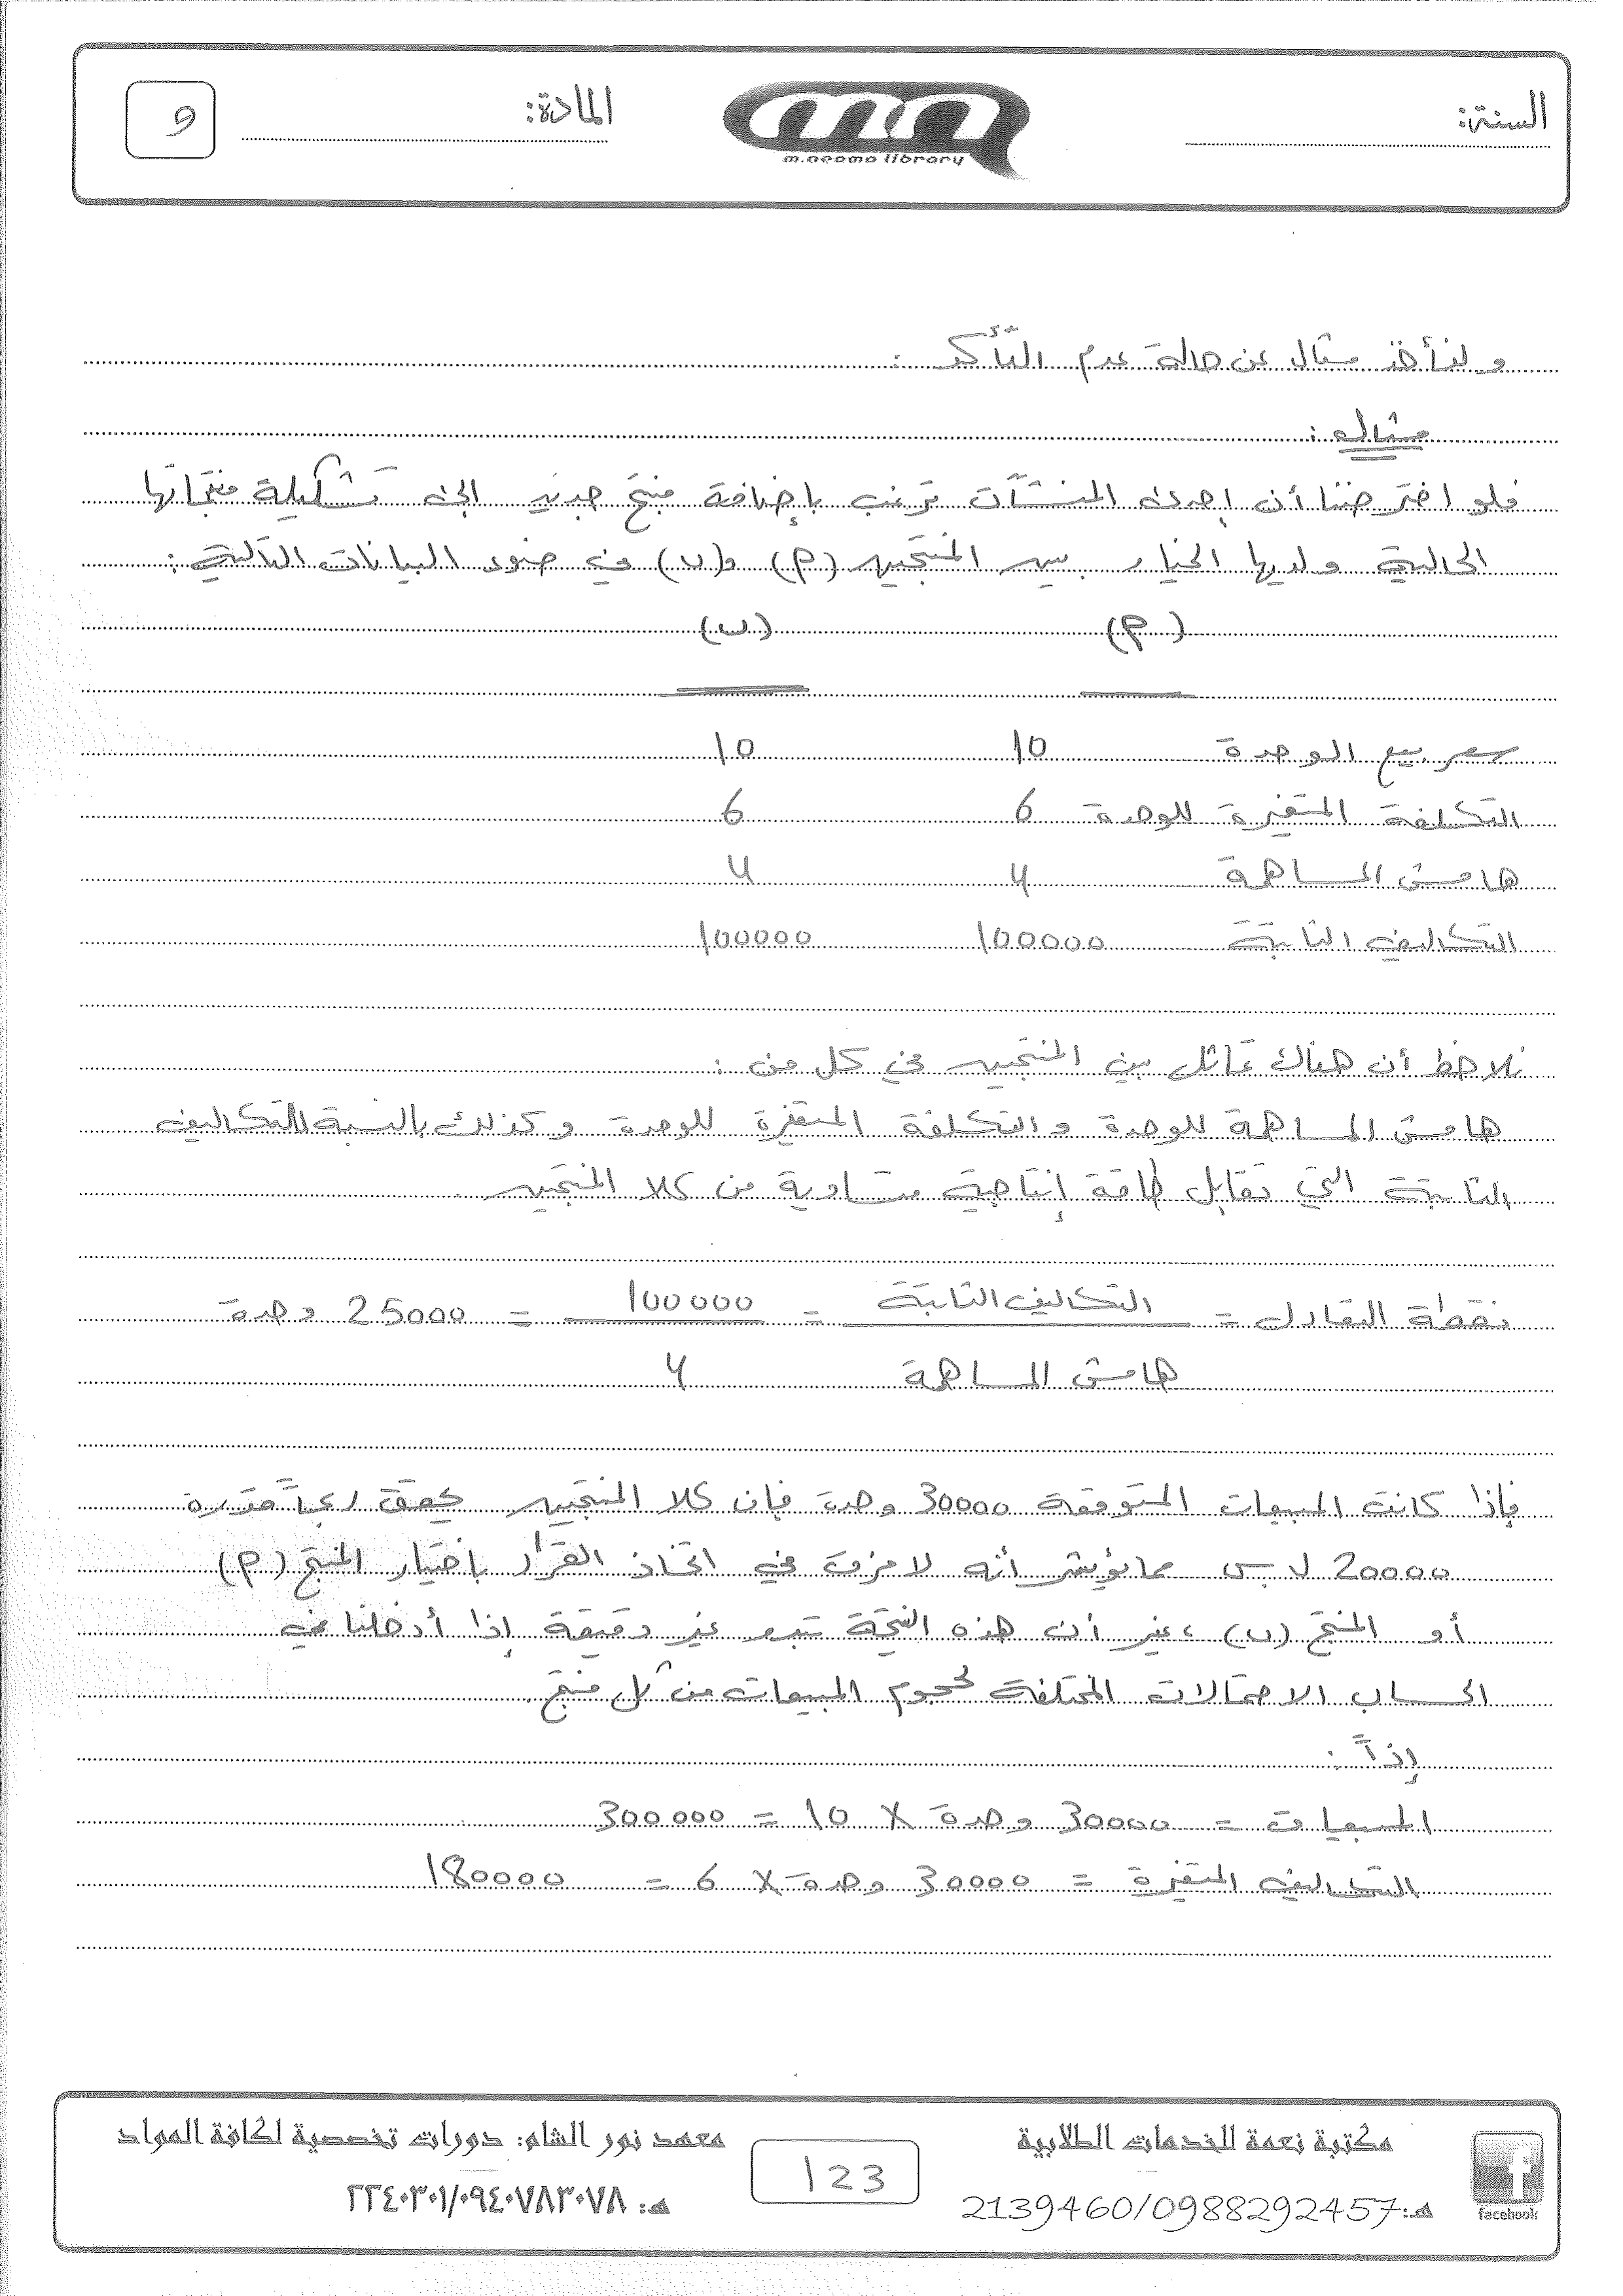 السنة:
m.neama library
المادة:
9
ولنأخذ مثال عن حالة عدم التأكد :
مثال :
فلو افترضنا أن إحدى المنشآت ترغب بإضافة منتج جديد إلى تشكيلة منتجاتها
الحالية ولديها الخيار بين المنتجين (م) و(ں) في ضوء البيانات التالية :
(م) (ں)
سعر بيع الوحدة 10 10
التكلفة المتغيرة للوحدة 6 6
هامش المساهمة 4 4
التكاليف الثابتة 100000 100000
نلاحظ أن هناك تماثل بين المنتجين في كل من :
هامش المساهمة للوحدة والتكلفة المتغيرة للوحدة وكذلك بالنسبة للتكاليف
الثابتة التي تقابل طاقة إنتاجية متساوية من كلا المنتجين .
نقطة التعادل = التكاليف الثابتة = 100000 = 25000 وحدة
هامش المساهمة 4
فإذا كانت المبيعات المتوقعة 30000 وحدة فإن كلا المنتجين يحقق ربحاً مقداره
20000 ل.س مما يؤشر أنه لا فرق في اتخاذ القرار باختيار المنتج (م)
أو المنتج (ں) ، غير أن هذه النتيجة تبدو غير دقيقة إذا أدخلنا في
الحساب الاحتمالات المختلفة لحجوم المبيعات من كل منتج .
إذاً :
المبيعات = 30000 وحدة X 10 = 300000
التكاليف المتغيرة = 30000 وحدة X 6 = 180000
مكتبة نعمة للخدمات الطلابية
هـ: 2139460/0988292457
facebook
123
معهد نور الشام: دورات تخصصية لكافة المواد
هـ: ٢٢٤٠٣٠١/٠٩٤٠٧٨٣٠٧٨